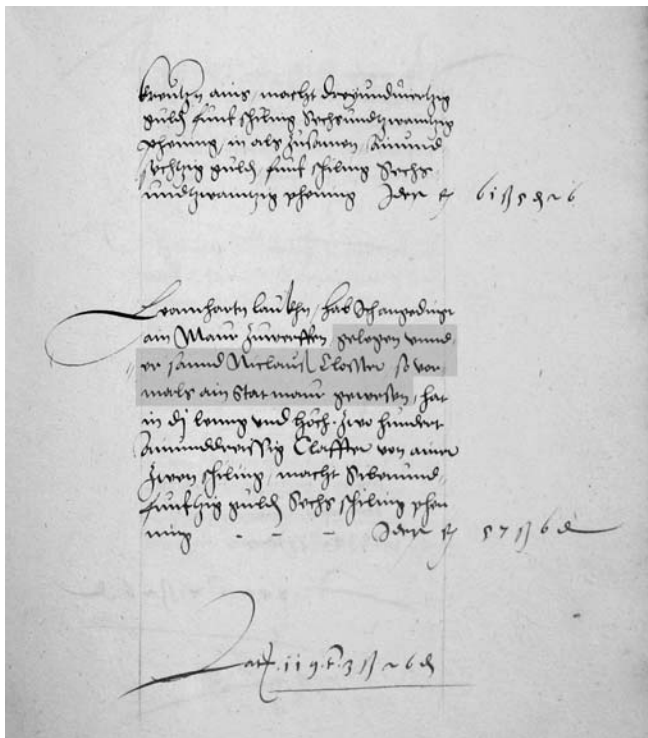 kreutzn ains, macht dreyundtzwentzig
guldn funf schiling Sechsundtzwantzig
phening, in als zusamen, Ainund
sechtzig guldn, funf schiling Sechs
undtzwantzig phening Idest
Leannhartn laukhn, hab Ich angedingt
ain Maur zuwerffen, gelegen unnd
er sannd Niclaus Closster so vor
mals ain Stat maur gewesen, hat
in di leng und hoch. Zwo hundert
Ainunddreissig Claffter von ainer
Zwen schiling, macht Sibenund
funftzig guldn Sechs schiling phen
ning - - - Idest 57 6 d